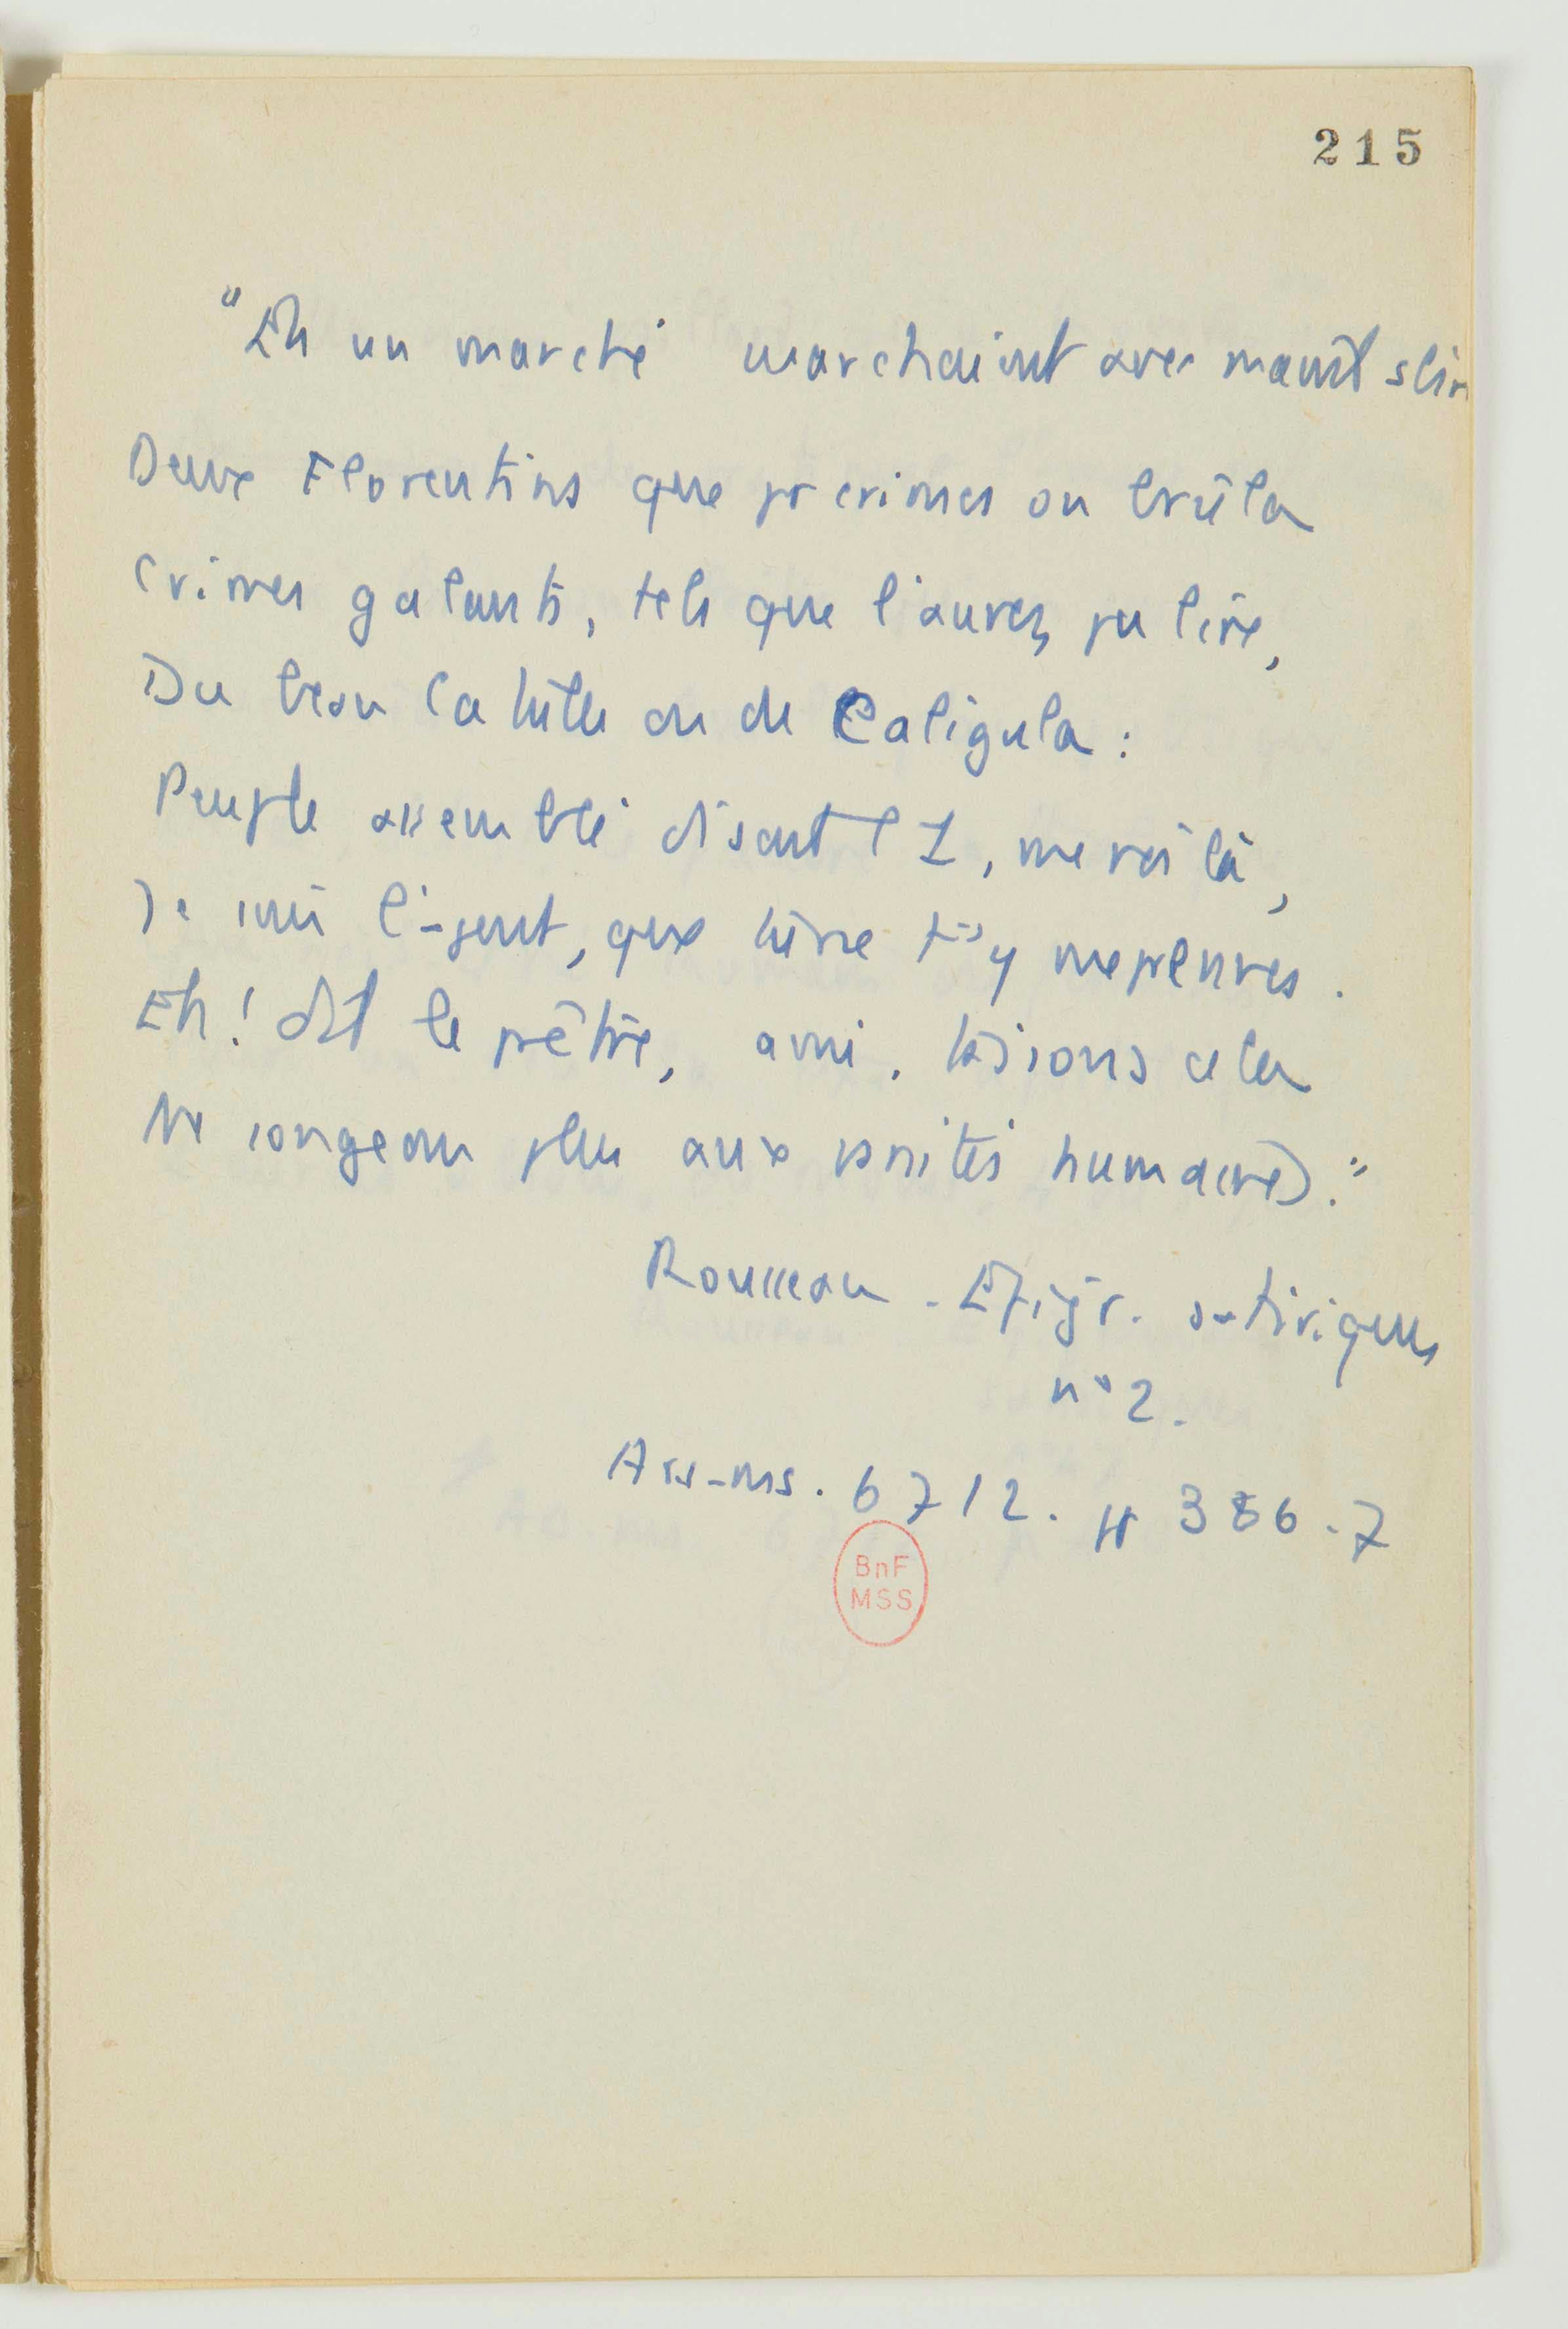 215
"En un marché marchaient avec maint sbir
Deux Florentins que pr crimes on brûla
Crimes galants, tels que l'aurez pu lire,
Du beau Catulle ou de Caligula :
Peuple assemblé disant l' 1, me voilà,
Je suis l'agent, que luire t'y
Eh! dit le prêtre, ami, laissons cela
Ne songeons plus aux vanités humaines."
Rousseau - Epigr. satiriques
n° 2.
Ars-ms. 6712. ff 386-7
BnF
MSS